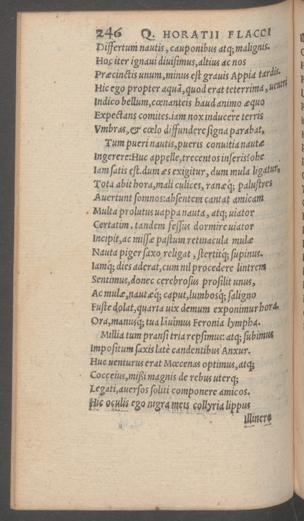 246 Q. HORATII FLACCI
Differtum nautis, cauponibus atq; malignis.
Hoc iter ignaui diuisimus, altius ac nos
Præcinctis unum, minus est grauis Appia tardis.
Hic ego propter aquã, quod erat teterrima, uentri
Indico bellum, cœnanteis haud animo æquo
Expectans comites. iam nox inducere terris
Vmbras, & cœlo diffundere signa parabat,
Tum pueri nautis, pueris conuitia nautæ
Ingerere: Huc appelle, trecentos inseris: ohe
Iam satis est. dum æs exigitur, dum mula ligatur,
Tota abit hora, mali culices, ranæq; palustres
Auertunt somnos: absentem cantat amicam
Multa prolutus uappa nauta, atq; uiator
Certatim. tandem fessus dormire uiator
Incipit, ac missæ pastum retinacula mulæ
Nauta piger saxo religat, stertitq; supinus.
Iamq; dies aderat, cum nil procedere lintrem
Sentimus, donec cerebrosus prosilit unus,
Ac mulæ, nautæq; caput, lumbosq; saligno
Fuste dolat, quarta uix demum exponimur hora.
Ora, manusq; tua lauimus Feronia lympha.
Millia tum pransi tria repsimus: atq; subimus
Impositum saxis late candentibus Anxur.
Huc uenturus erat Mœcenas optimus, atq;
Cocceius, missi magnis de rebus uterq;
Legati, auersos soliti componere amicos.
Hic oculis ego nigra meis collyria lippus
Illinere